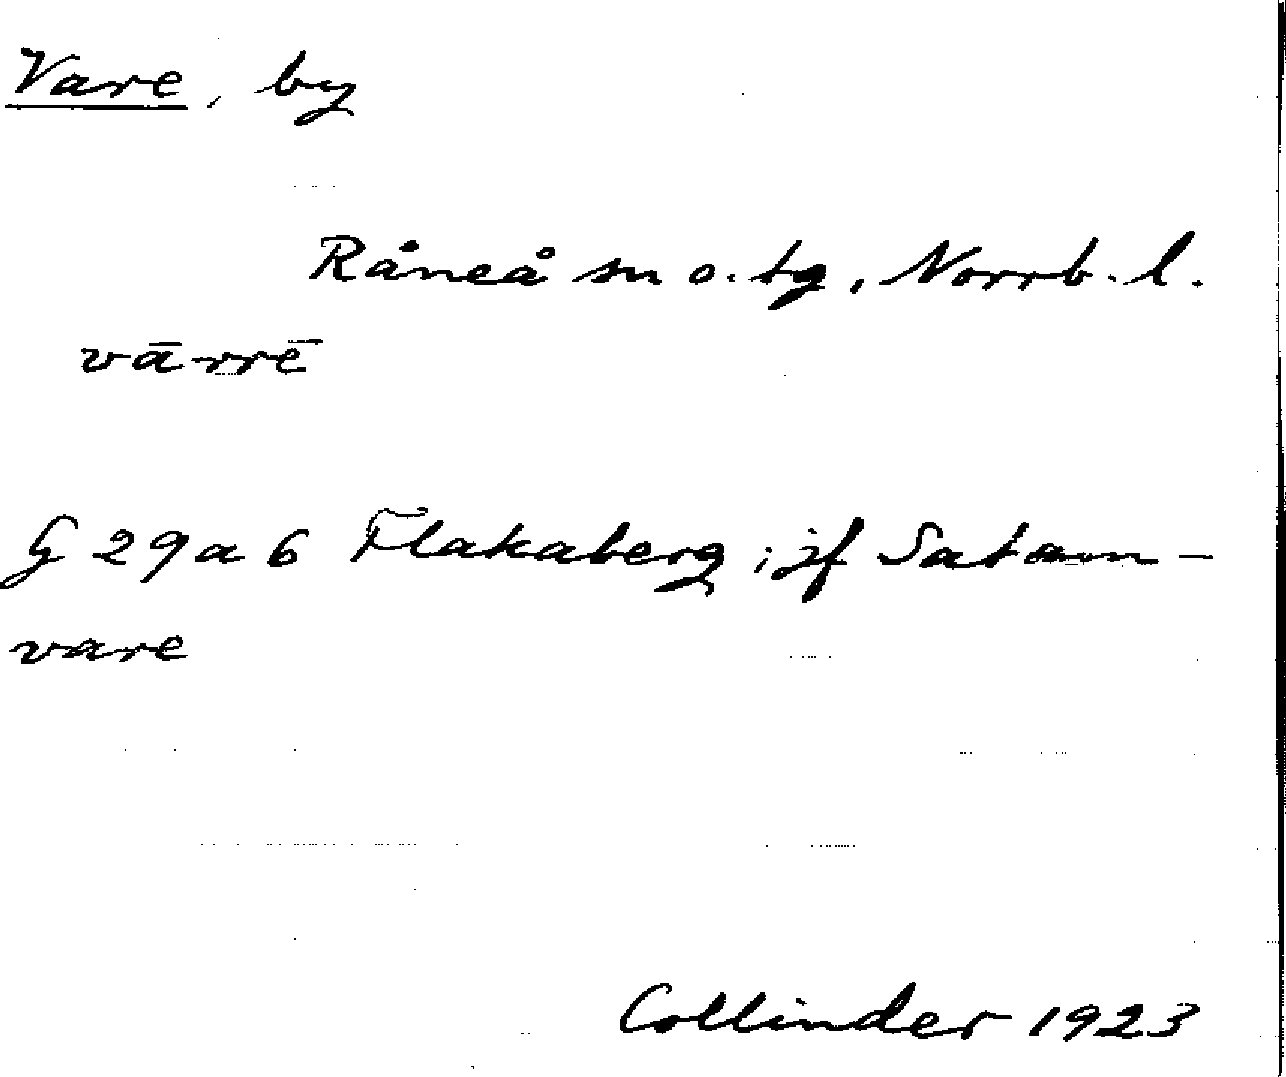 Vare, by
Råneå sn o. tg, Norrb. l.
vārrē
G 29 a 6 Flakaberg; jf Satam-
vare
Collinder 1923